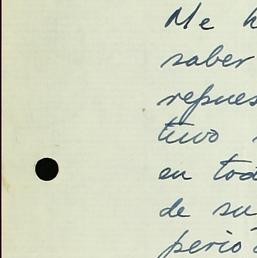 Me h
saber
repues
tuvo
en tod
de su
perió